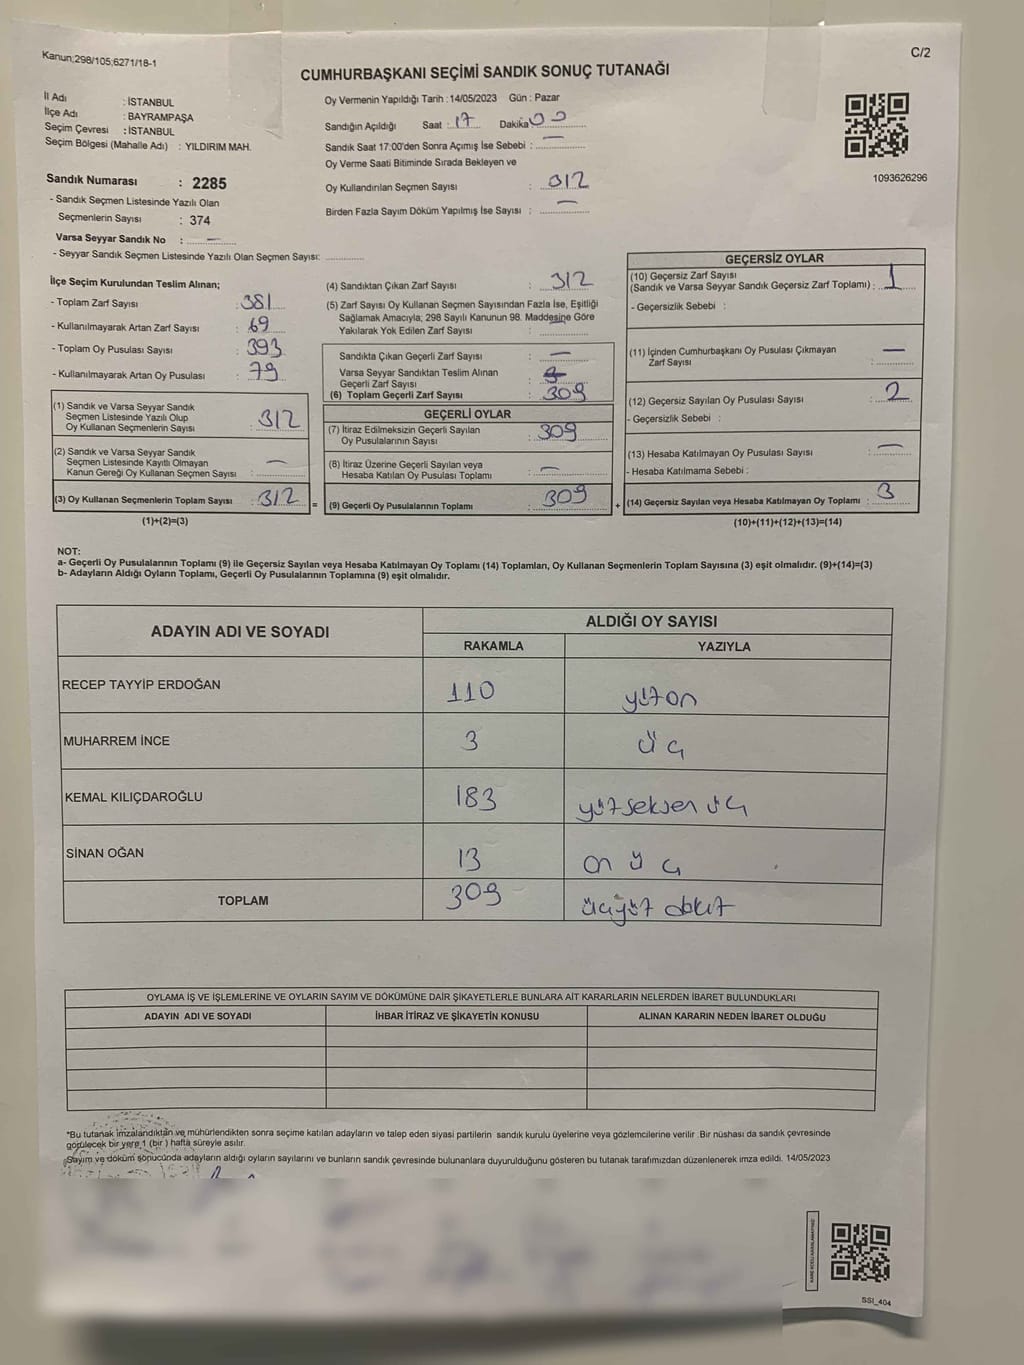 Kanun;298/105;6271/18-1
C/2
CUMHURBAŞKANI SEÇİMİ SANDIK SONUÇ TUTANAĞI
İl Adı : İSTANBUL
İlçe Adı : BAYRAMPAŞA
Seçim Çevresi : İSTANBUL
Seçim Bölgesi (Mahalle Adı) : YILDIRIM MAH.
Sandık Numarası : 2285
- Sandık Seçmen Listesinde Yazılı Olan
Seçmenlerin Sayısı : 374
Varsa Seyyar Sandık No : —
- Seyyar Sandık Seçmen Listesinde Yazılı Olan Seçmen Sayısı: ..............
Oy Vermenin Yapıldığı Tarih : 14/05/2023 Gün : Pazar
Sandığın Açıldığı Saat : 17 Dakika 00
Sandık Saat 17:00'den Sonra Açımış İse Sebebi : —
Oy Verme Saati Bitiminde Sırada Bekleyen ve
Oy Kullandırılan Seçmen Sayısı : 312
Birden Fazla Sayım Döküm Yapılmış İse Sayısı : —
1093626296
İlçe Seçim Kurulundan Teslim Alınan;
- Toplam Zarf Sayısı : 381
- Kullanılmayarak Artan Zarf Sayısı : 69
- Toplam Oy Pusulası Sayısı : 393
- Kullanılmayarak Artan Oy Pusulası : 79
(1) Sandık ve Varsa Seyyar Sandık
Seçmen Listesinde Yazılı Olup
Oy Kullanan Seçmenlerin Sayısı : 312
(2) Sandık ve Varsa Seyyar Sandık
Seçmen Listesinde Kayıtlı Olmayan
Kanun Gereği Oy Kullanan Seçmen Sayısı : —
(3) Oy Kullanan Seçmenlerin Toplam Sayısı : 312
(1)+(2)=(3)
(4) Sandıktan Çıkan Zarf Sayısı : 312
(5) Zarf Sayısı Oy Kullanan Seçmen Sayısından Fazla İse, Eşitliği
Sağlamak Amacıyla; 298 Sayılı Kanunun 98. Maddesine Göre
Yakılarak Yok Edilen Zarf Sayısı : —
Sandıkta Çıkan Geçerli Zarf Sayısı : —
Varsa Seyyar Sandıktan Teslim Alınan
Geçerli Zarf Sayısı :
(6) Toplam Geçerli Zarf Sayısı : 309
GEÇERLİ OYLAR
(7) İtiraz Edilmeksizin Geçerli Sayılan
Oy Pusulalarının Sayısı : 309
(8) İtiraz Üzerine Geçerli Sayılan veya
Hesaba Katılan Oy Pusulası Toplamı : —
= (9) Geçerli Oy Pusulalarının Toplamı : 309
GEÇERSİZ OYLAR
(10) Geçersiz Zarf Sayısı
(Sandık ve Varsa Seyyar Sandık Geçersiz Zarf Toplamı) : 1
- Geçersizlik Sebebi :
(11) İçinden Cumhurbaşkanı Oy Pusulası Çıkmayan
Zarf Sayısı : —
(12) Geçersiz Sayılan Oy Pusulası Sayısı : 2
- Geçersizlik Sebebi :
(13) Hesaba Katılmayan Oy Pusulası Sayısı : —
- Hesaba Katılmama Sebebi :
+ (14) Geçersiz Sayılan veya Hesaba Katılmayan Oy Toplamı : 3
(10)+(11)+(12)+(13)=(14)
NOT:
a- Geçerli Oy Pusulalarının Toplamı (9) ile Geçersiz Sayılan veya Hesaba Katılmayan Oy Toplamı (14) Toplamları, Oy Kullanan Seçmenlerin Toplam Sayısına (3) eşit olmalıdır. (9)+(14)=(3)
b- Adayların Aldığı Oyların Toplamı, Geçerli Oy Pusulalarının Toplamına (9) eşit olmalıdır.
ADAYIN ADI VE SOYADI
ALDIĞI OY SAYISI
RAKAMLA YAZIYLA
RECEP TAYYİP ERDOĞAN 110 yüzon
MUHARREM İNCE 3 üç
KEMAL KILIÇDAROĞLU 183 yüzseksen üç
SİNAN OĞAN 13 on üç
TOPLAM 309 üçyüz dokuz
OYLAMA İŞ VE İŞLEMLERİNE VE OYLARIN SAYIM VE DÖKÜMÜNE DAİR ŞİKAYETLERLE BUNLARA AİT KARARLARIN NELERDEN İBARET BULUNDUKLARI
ADAYIN ADI VE SOYADI İHBAR İTİRAZ VE ŞİKAYETİN KONUSU ALINAN KARARIN NEDEN İBARET OLDUĞU
*Bu tutanak imzalandıktan ve mühürlendikten sonra seçime katılan adayların ve talep eden siyasi partilerin sandık kurulu üyelerine veya gözlemcilerine verilir .Bir nüshası da sandık çevresinde
görülecek bir yere 1 (bir ) hafta süreyle asılır.
Sayım ve döküm sonucunda adayların aldığı oyların sayılarını ve bunların sandık çevresinde bulunanlara duyurulduğunu gösteren bu tutanak tarafımızdan düzenlenerek imza edildi. 14/05/2023
SSI_404